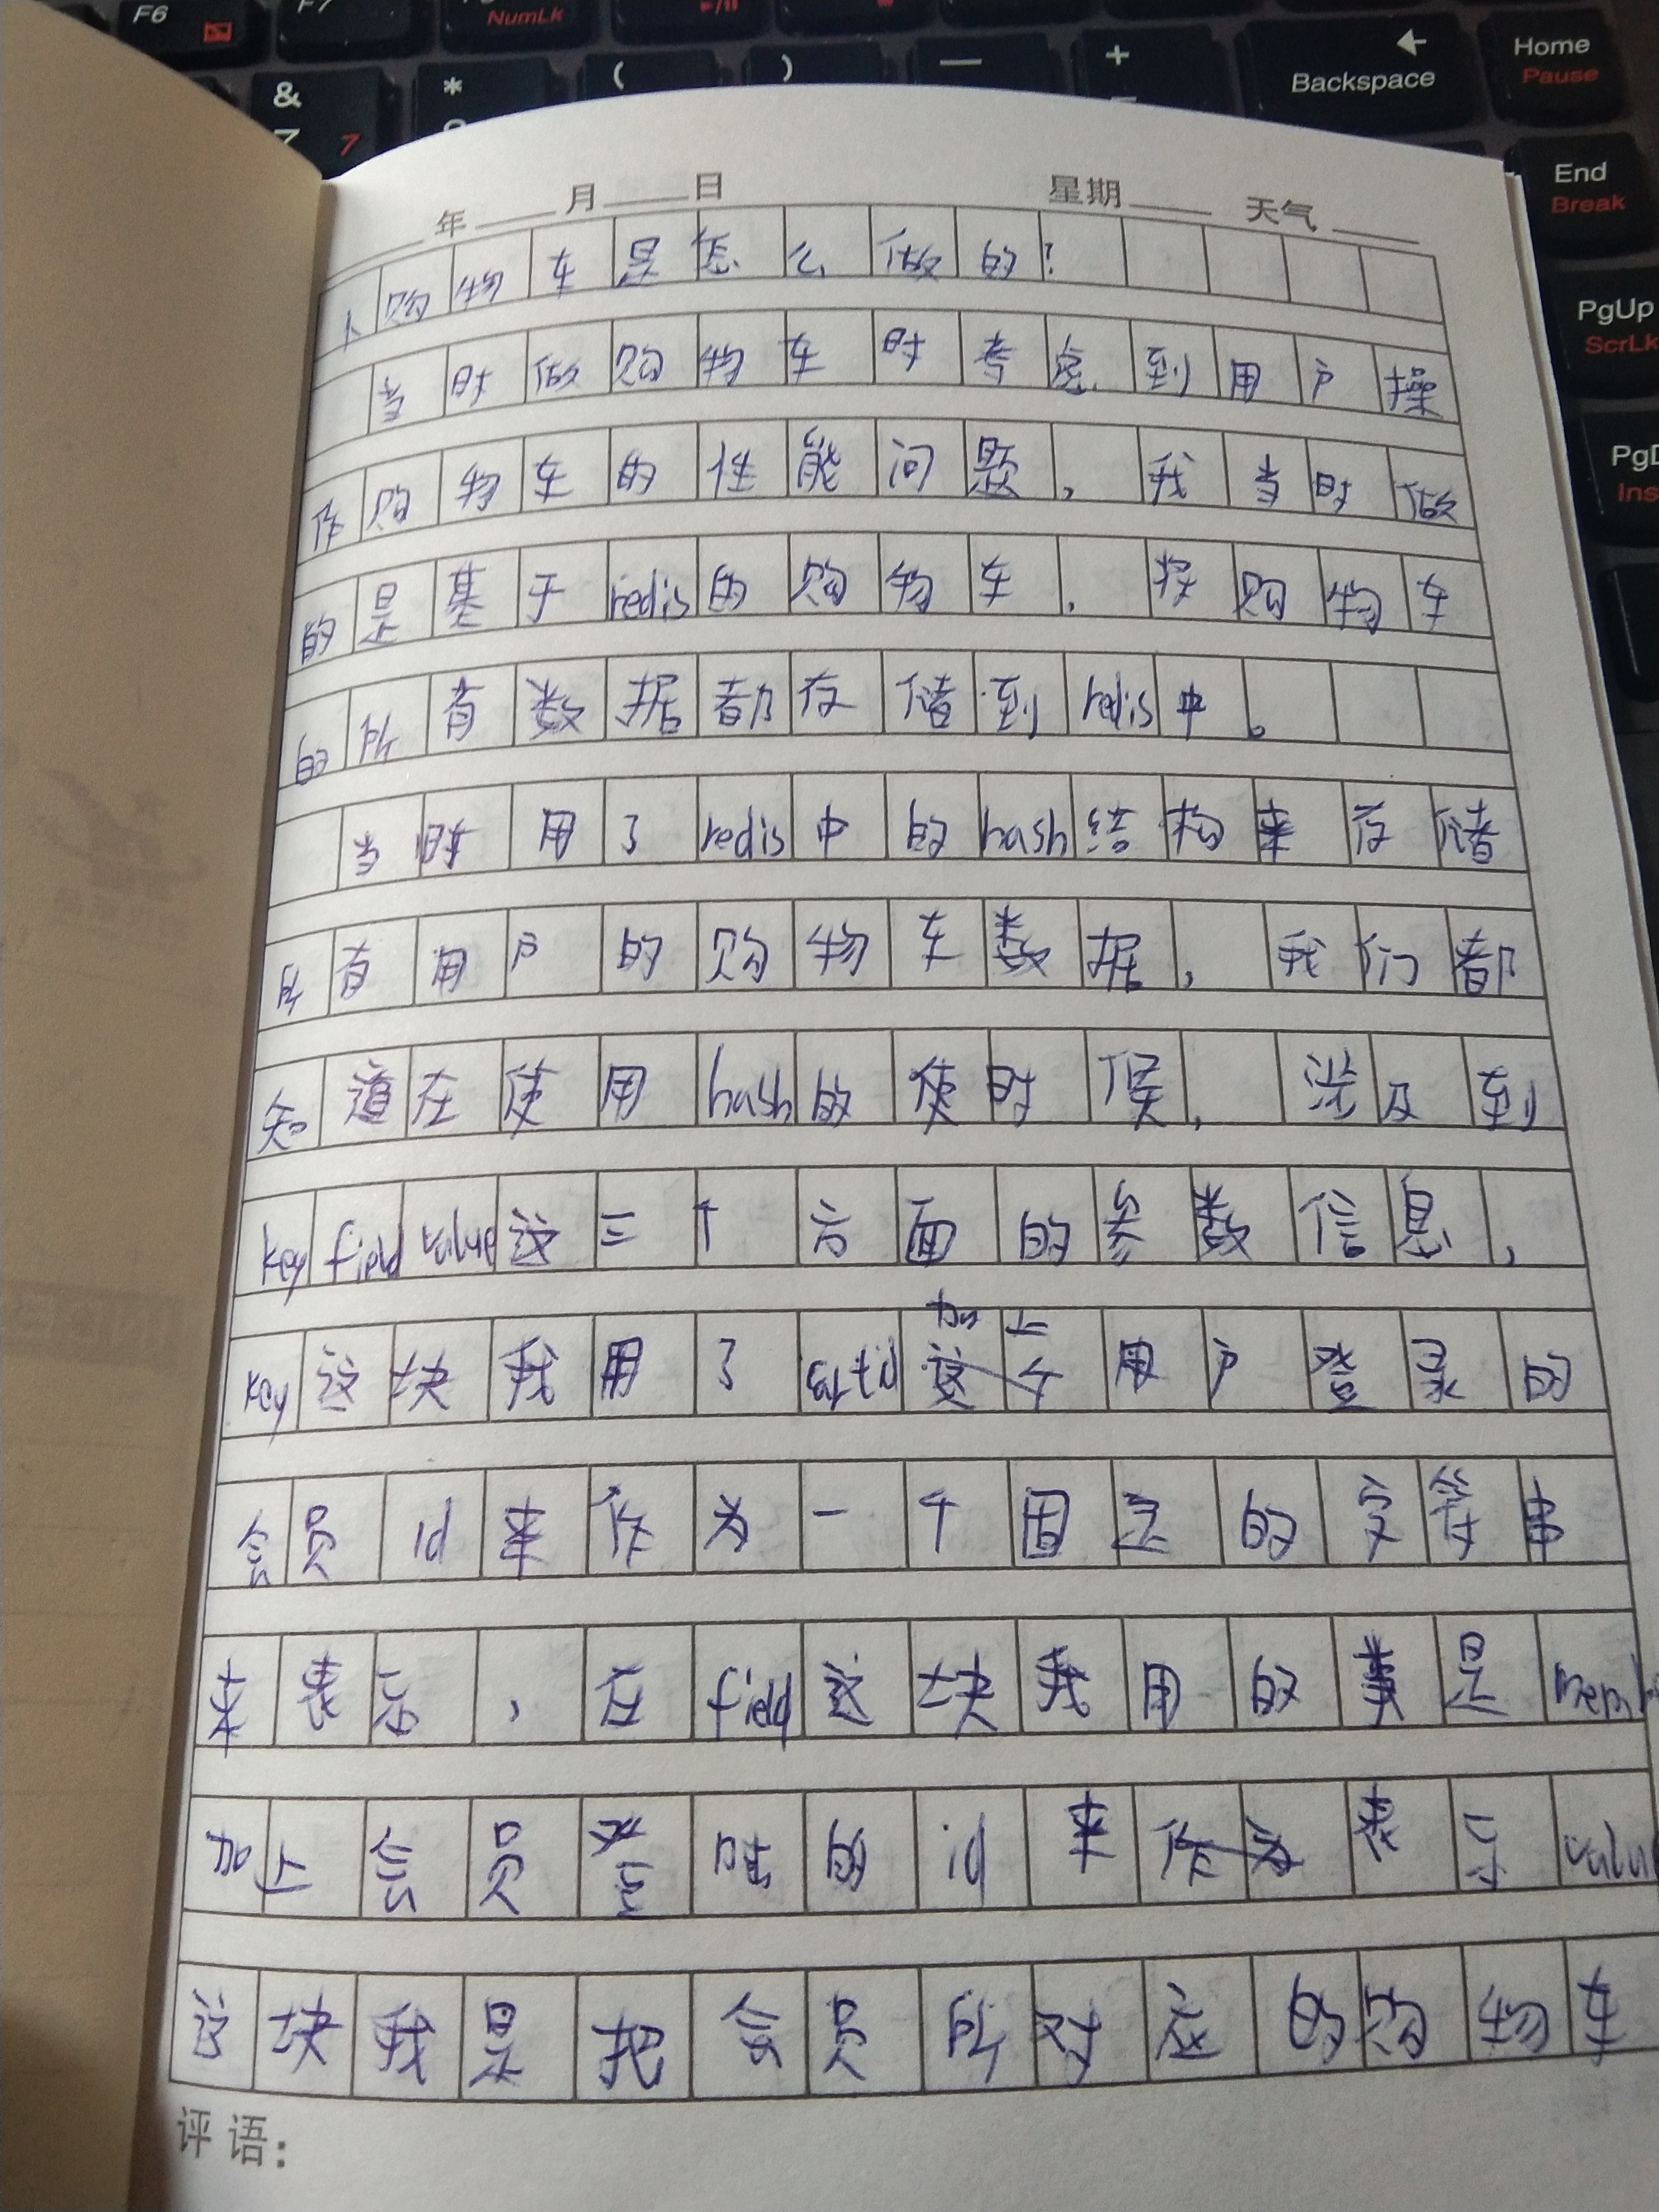 F6 F7 NumLk
& 7 7 * ( ) — + Backspace Home Pause
End Break
PgUp ScrLk
PgD Ins
年 月 日 星期 天气
1、购物车是怎么做的?
当时做购物车时考虑到用户操
作购物车的性能问题,我当时做
的是基于redis的购物车,将购物车
的所有数据都存储到redis中。
当时用了redis中的hash结构来存储
所有用户的购物车数据,我们都
知道在使用hash的使时候,涉及到
key field value这三个方面的参数信息,
加上
key这块我用了cartid用户登录的
会员id来作为一个固定的字符串
来表示,在field这块我用的类是mem
加上会员登陆的id来表示valu
这块我是把会员所对应的购物车
评语: